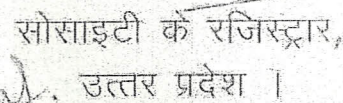 सोसाइटी के रजिस्ट्रार,
उत्तर प्रदेश ।